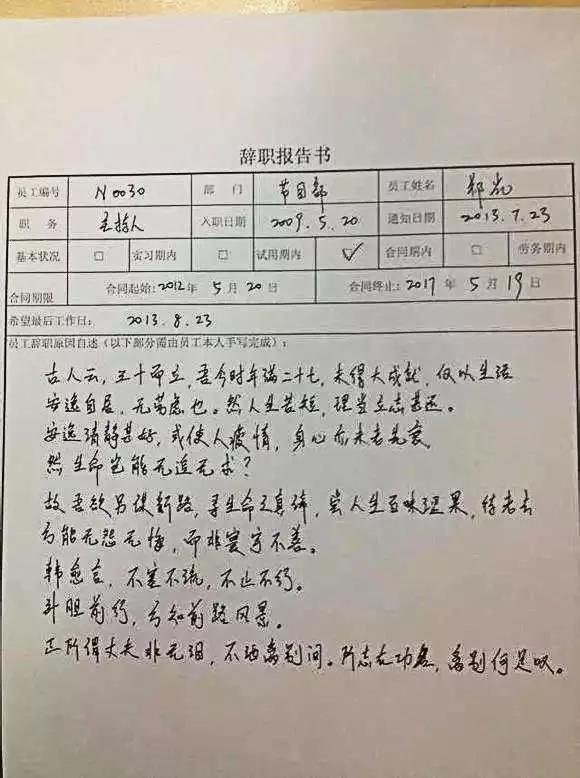 辞职报告书
员工编号 N0030 部 门 节目部 员工姓名 郑
职 务 主持人 入职日期 2009.5.20 通知日期 2013.7.23
基本状况 □ 实习期内 □ 试用期内 ✓ 合同期内 □ 劳务期内
合同期限 合同起始:2012年 5月 20日 合同终止:2017年 5月 19日
希望最后工作日: 2013.8.23
员工辞职原因自述(以下部分需由员工本人手写完成):
古人云,三十而立,吾今时年满二十七,未得大成就,仅以生活
安逸自居,无劳虑也。然人生苦短,理当立志甚远。
安逸清静甚好,或使人疲惰,身心亦未老先衰。
然生命岂能无追无求?
故吾欲另谋新路,寻生命之真谛,尝人生百味硕果,待老去
方能无怨无悔,而非寰宇不善。
韩愈言,不塞不流,不止不行。
斗胆前行,方知前路风景。
正所谓丈夫非无泪,不洒离别间。所志在功名,离别何足叹。